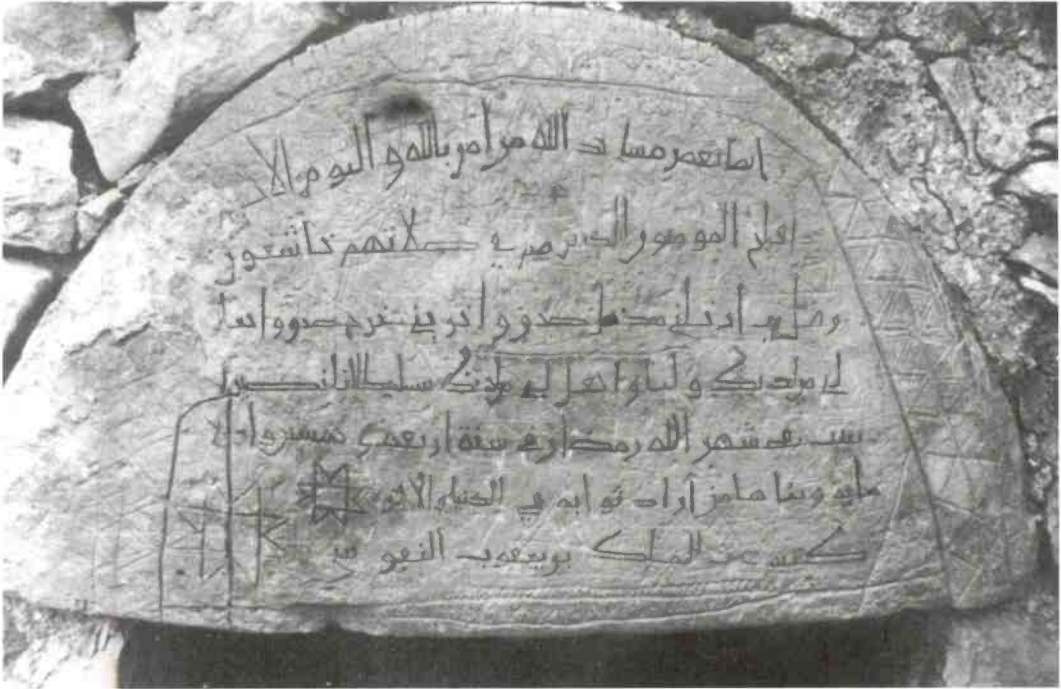 انما يعمر مساجد الله من امن بالله و اليوم الا
افلح المومنون الذين هم في صلاتهم خاشعون
وقل رب ادخلني مدخل صدق و اخرجني مخرج صدق و اجعل
لي من لدنك وليا و اجعل لي من لدنك سلطانا نصيرا
شهر الله رمضان سنة اربع و خمسين
مايه و بناها من اراد ثوابه في الدنيا و الاخره
عبد الملك بن يعقوب